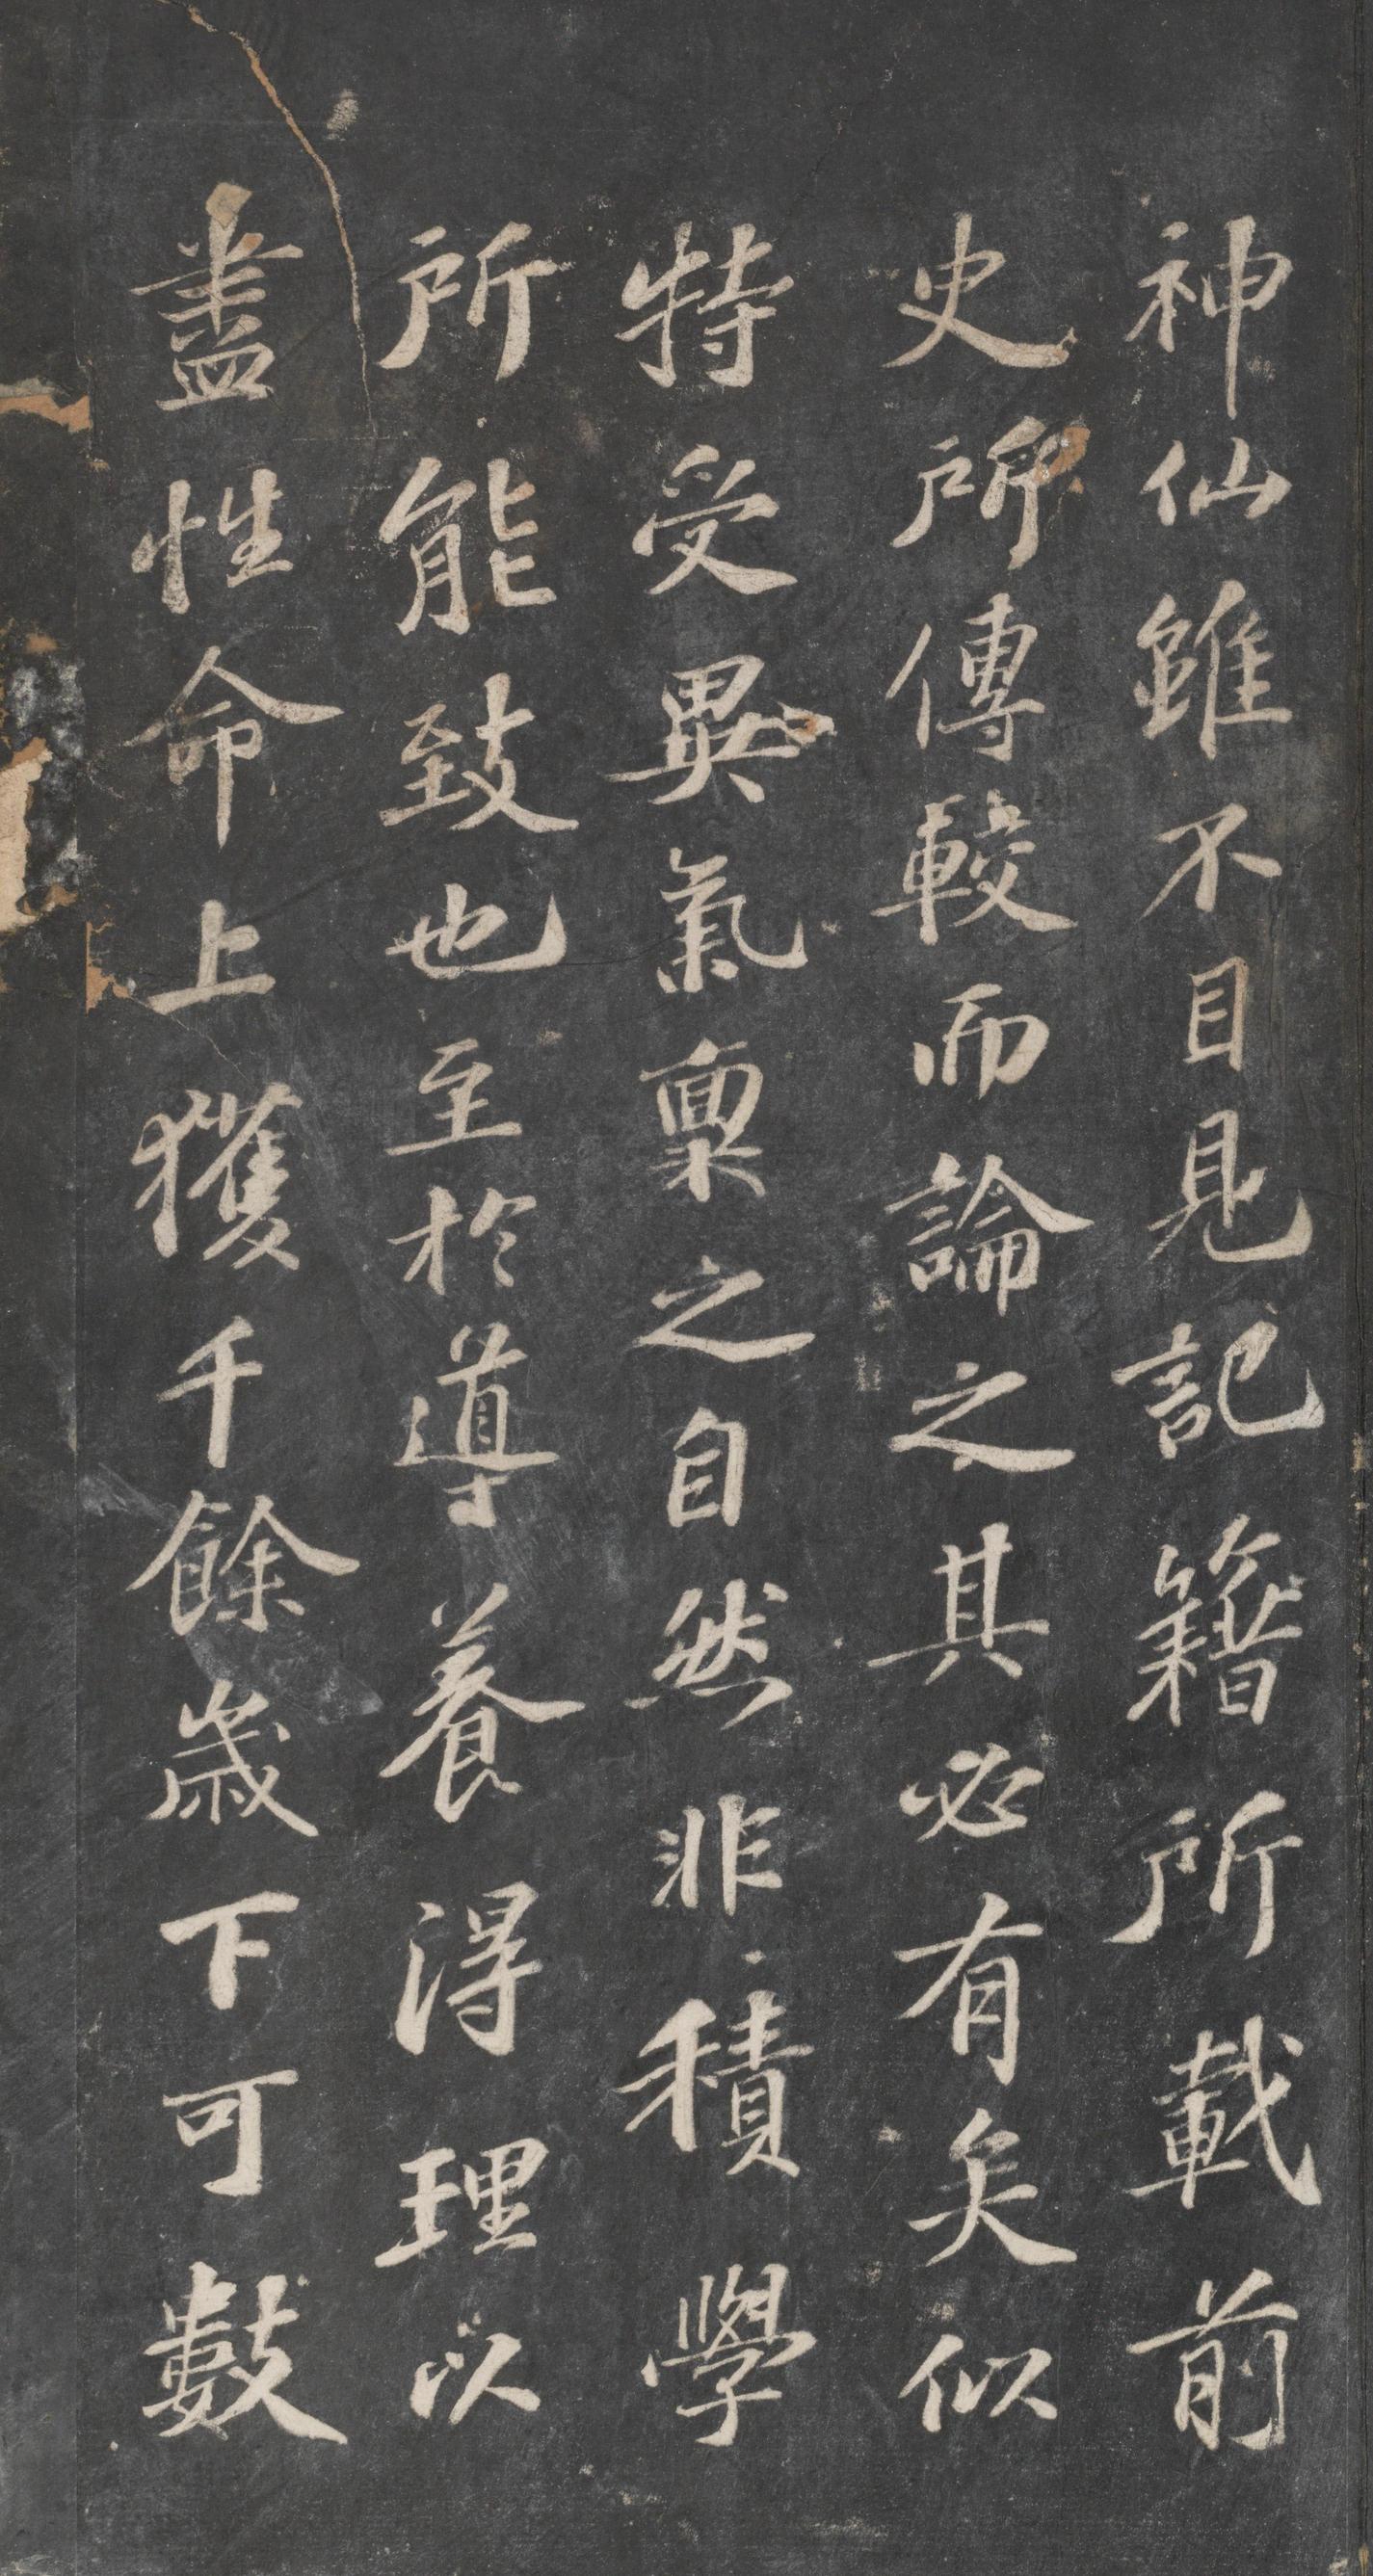 神仙雖不目見記籍所載前
史所傳較而論之其必有矣似
特受異氣稟之自然非積學
所能致也至於導養得理以
盡性命上獲千餘歲下可數